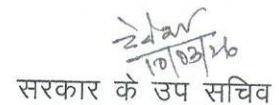 10/03/26
सरकार के उप सचिव